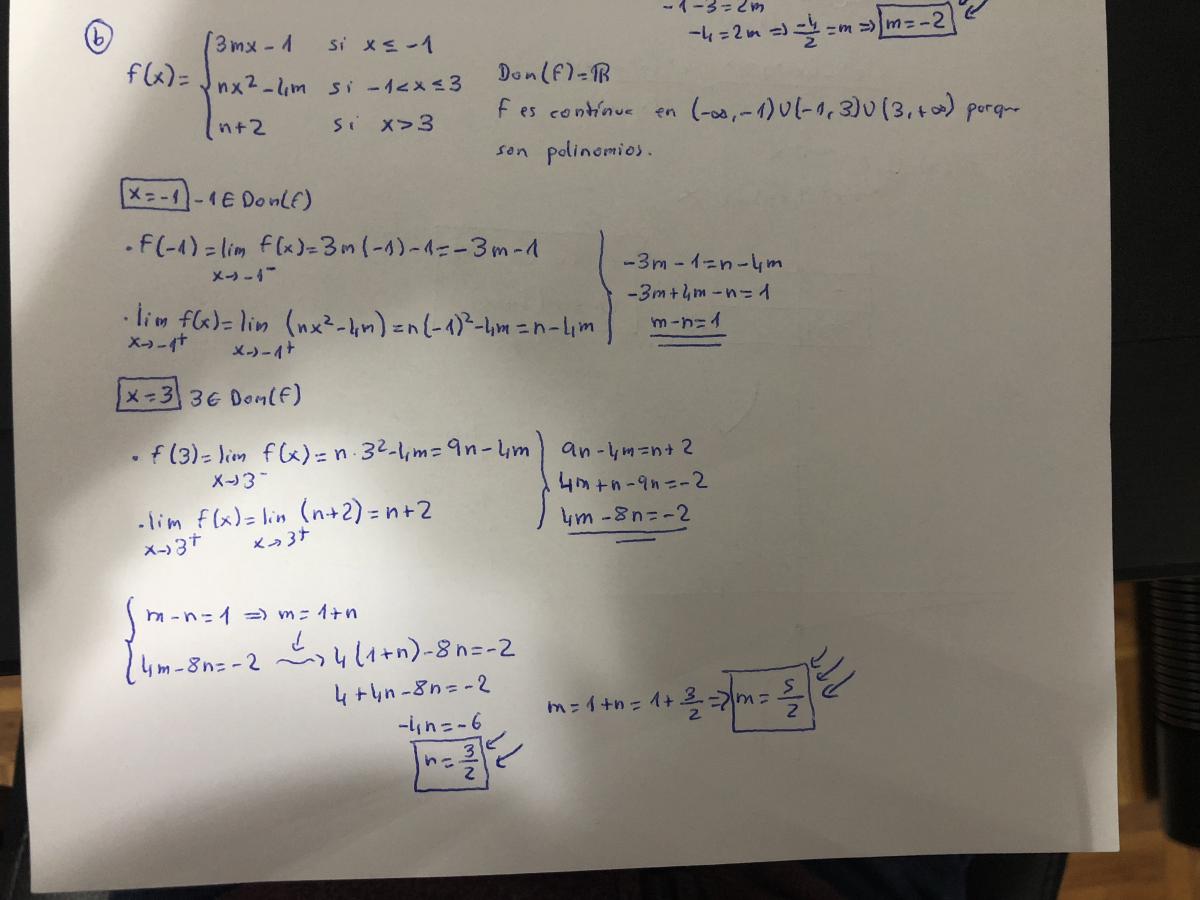 -1-3=2m
-4=2m ⇒ -4/2 = m ⇒ m=-2
b
f(x)= { 3mx-1 si x≤-1
nx²-4m si -1<x≤3
n+2 si x>3
Dom(f)=ℝ
f es contínua en (-∞,-1)∪(-1,3)∪(3,+∞) porque
son polinomios.
x=-1 -1∈Dom(f)
· f(-1)=lim f(x)=3m(-1)-1=-3m-1
x→-1⁻
· lim f(x)=lim (nx²-4m)=n(-1)²-4m=n-4m
x→-1⁺ x→-1⁺
-3m-1=n-4m
-3m+4m-n=1
m-n=1
x=3 3∈Dom(f)
· f(3)=lim f(x)=n·3²-4m=9n-4m
x→3⁻
· lim f(x)=lim (n+2)=n+2
x→3⁺ x→3⁺
9n-4m=n+2
4m+n-9n=-2
4m-8n=-2
{ m-n=1 ⇒ m=1+n
4m-8n=-2 → 4(1+n)-8n=-2
4+4n-8n=-2
-4n=-6
n=3/2
m=1+n=1+3/2 ⇒ m=5/2